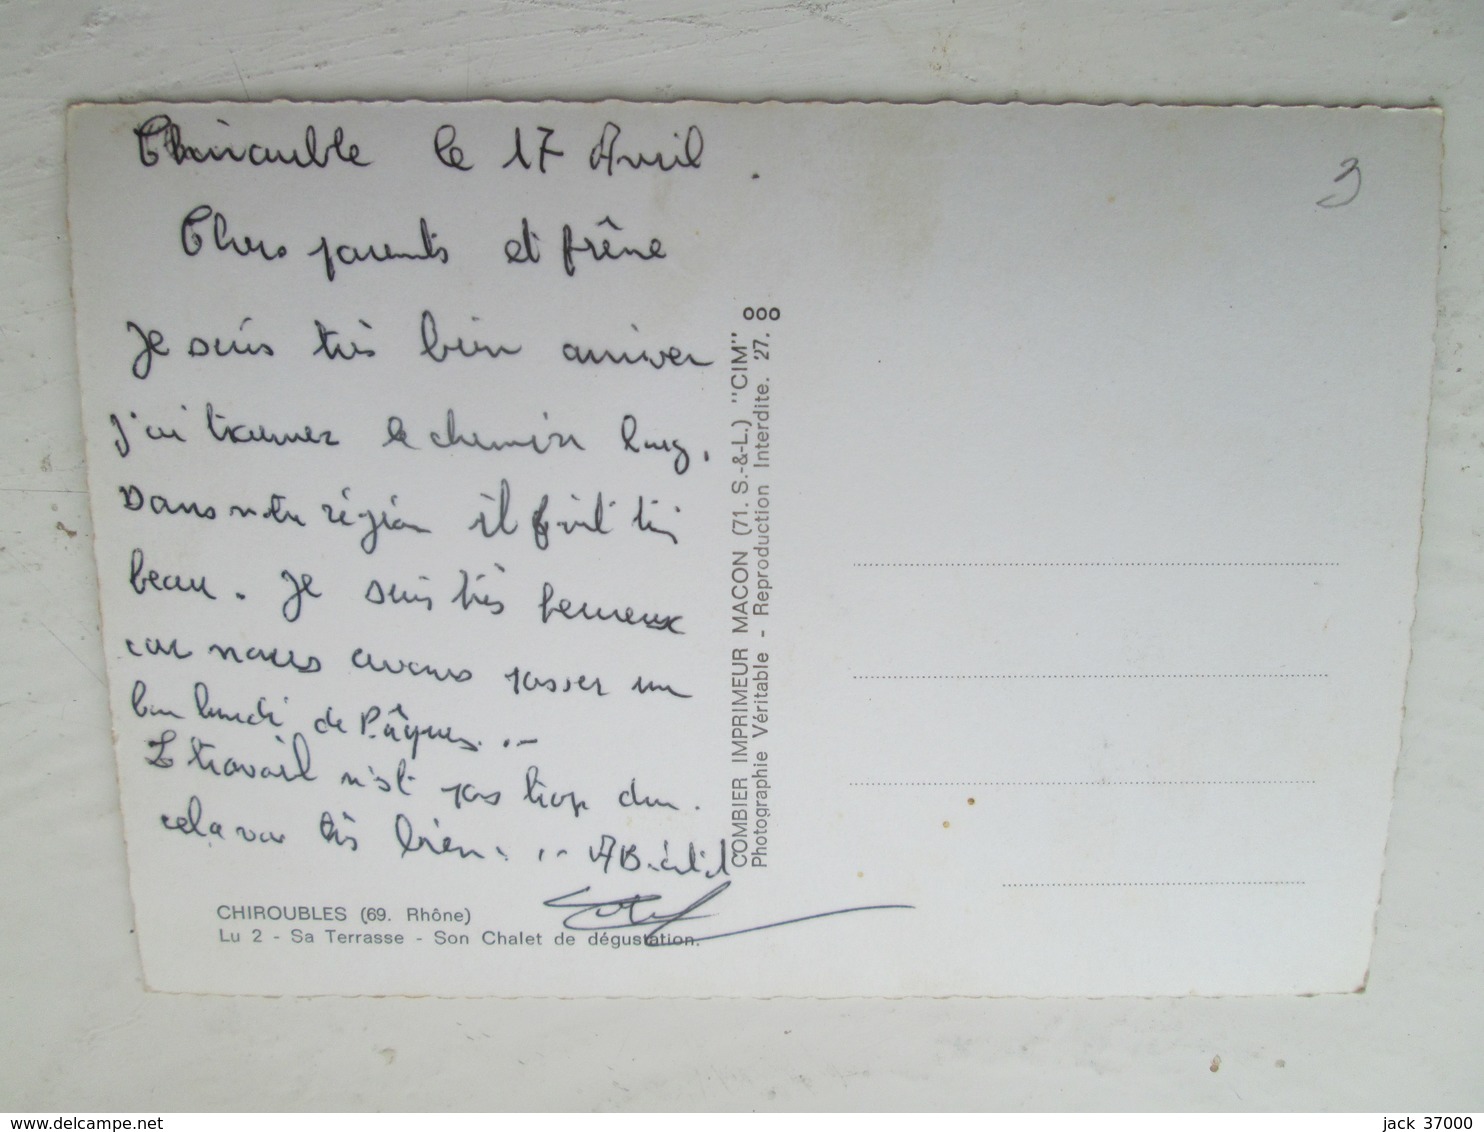 Chirouble le 17 Avril.
3
Chers parents et frêne
Je suis très bien arriver
J'ai trouver le chemin long.
Dans notre région il fait très
beau. Je suis très heureux
car nous avons passer un
bon lundi de Pâques...
Le travail n'est pas trop dur.
cela va très bien...
CHIROUBLES (69. Rhône)
Lu 2 - Sa Terrasse - Son Chalet de dégustation.
COMBIER IMPRIMEUR MACON (71. S.-&-L.) "CIM"
Photographie Véritable - Reproduction Interdite. 27. ooo
delcampe.net
jack 37000